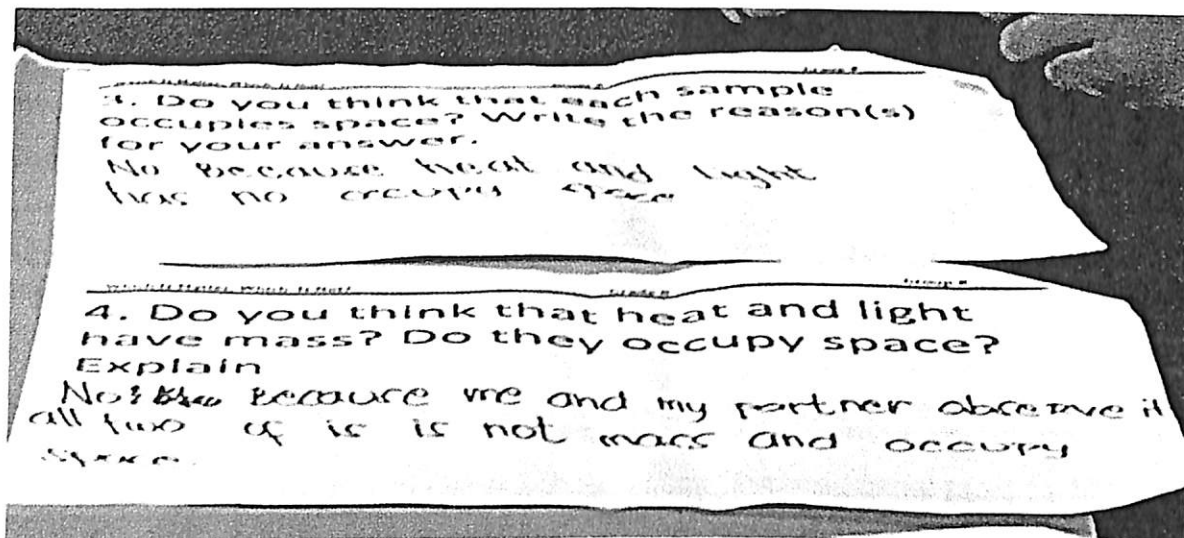 3. Do you think that each sample
occupies space? Write the reason(s)
for your answer.
No Because heat and light
has no occupy space
Which Is Matter, Which Is Not?
4. Do you think that heat and light
have mass? Do they occupy space?
Explain
No! Because me and my partner observe it
all two of is is not mass and occupy
space.